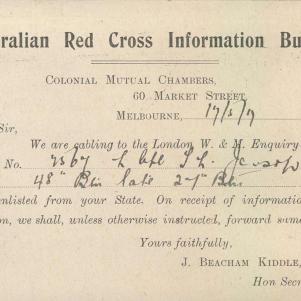 ralian Red Cross Information Bu
COLONIAL MUTUAL CHAMBERS,
60 MARKET STREET,
MELBOURNE, 17/5/17
Sir,
We are cabling to the London W. & M. Enquiry
No. 4867
48th Btn late 27th Btn
enlisted from your State. On receipt of information
on, we shall, unless otherwise instructed, forward same
Yours faithfully,
J. BEACHAM KIDDLE,
Hon Secr